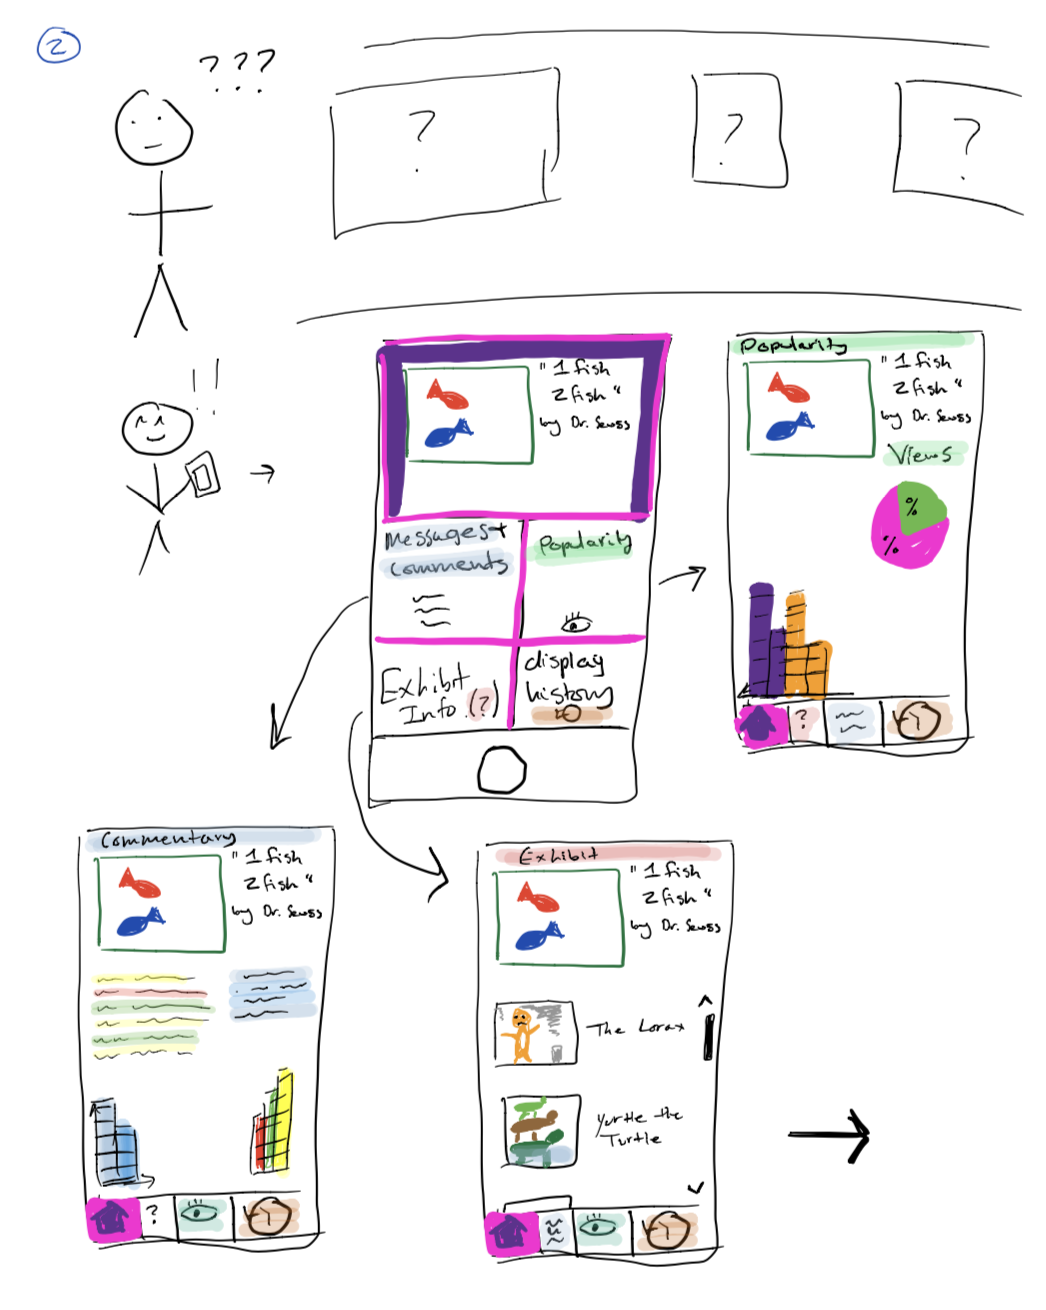 2
? ? ?
?
?
?
! !
"1 fish
2 fish"
by Dr. Seuss
Messages +
Comments
Popularity
Exhibit
Info (?)
display
history
Popularity
"1 fish
2 fish"
by Dr. Seuss
Views
%
%
?
Commentary
"1 fish
2 fish"
by Dr. Seuss
?
Exhibit
"1 fish
2 fish"
by Dr. Seuss
The Lorax
Yurtle the
Turtle